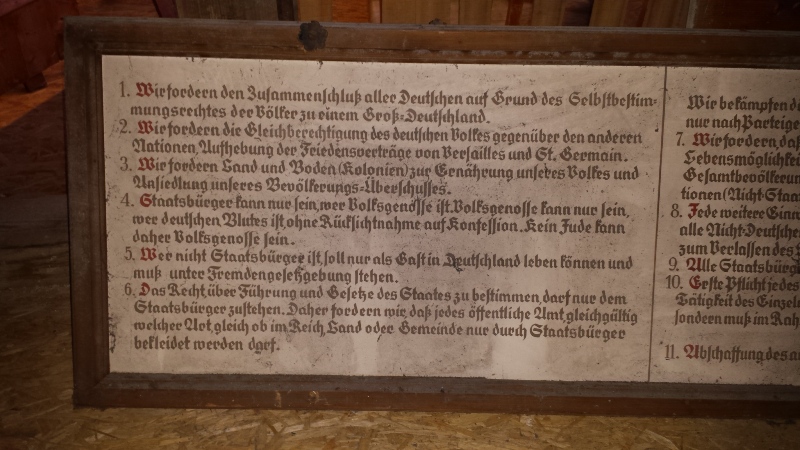 1. Wir fordern den Zusammenschluß aller Deutschen auf Grund des Selbstbestim-
mungsrechtes der Völker zu einem Groß-Deutschland.
2. Wir fordern die Gleichberechtigung des deutschen Volkes gegenüber den anderen
Nationen, Aufhebung der Friedensverträge von Versailles und St. Germain.
3. Wir fordern Land und Boden (Kolonien) zur Ernährung unseres Volkes und
Ansiedlung unseres Bevölkerungs-Überschusses.
4. Staatsbürger kann nur sein, wer Volksgenosse ist. Volksgenosse kann nur sein,
wer deutschen Blutes ist, ohne Rücksichtnahme auf Konfession. Kein Jude kann
daher Volksgenosse sein.
5. Wer nicht Staatsbürger ist, soll nur als Gast in Deutschland leben können und
muß unter Fremdengesetzgebung stehen.
6. Das Recht, über Führung und Gesetze des Staates zu bestimmen, darf nur dem
Staatsbürger zustehen. Daher fordern wir, daß jedes öffentliche Amt, gleichgültig
welcher Art, gleich ob im Reich, Land oder Gemeinde nur durch Staatsbürger
bekleidet werden darf.
Wir bekämpfen d
nur nach Parteige
7. Wir fordern, daß
Lebensmöglichkei
Gesamtbevölkerun
tionen (Nicht-Staa
8. Jede weitere Einw
alle Nicht-Deutsche
zum Verlassen des
9. Alle Staatsbürg
10. Erste Pflicht jedes
Tätigkeit des Einzel
sondern muß im Rah
11. Abschaffung des a